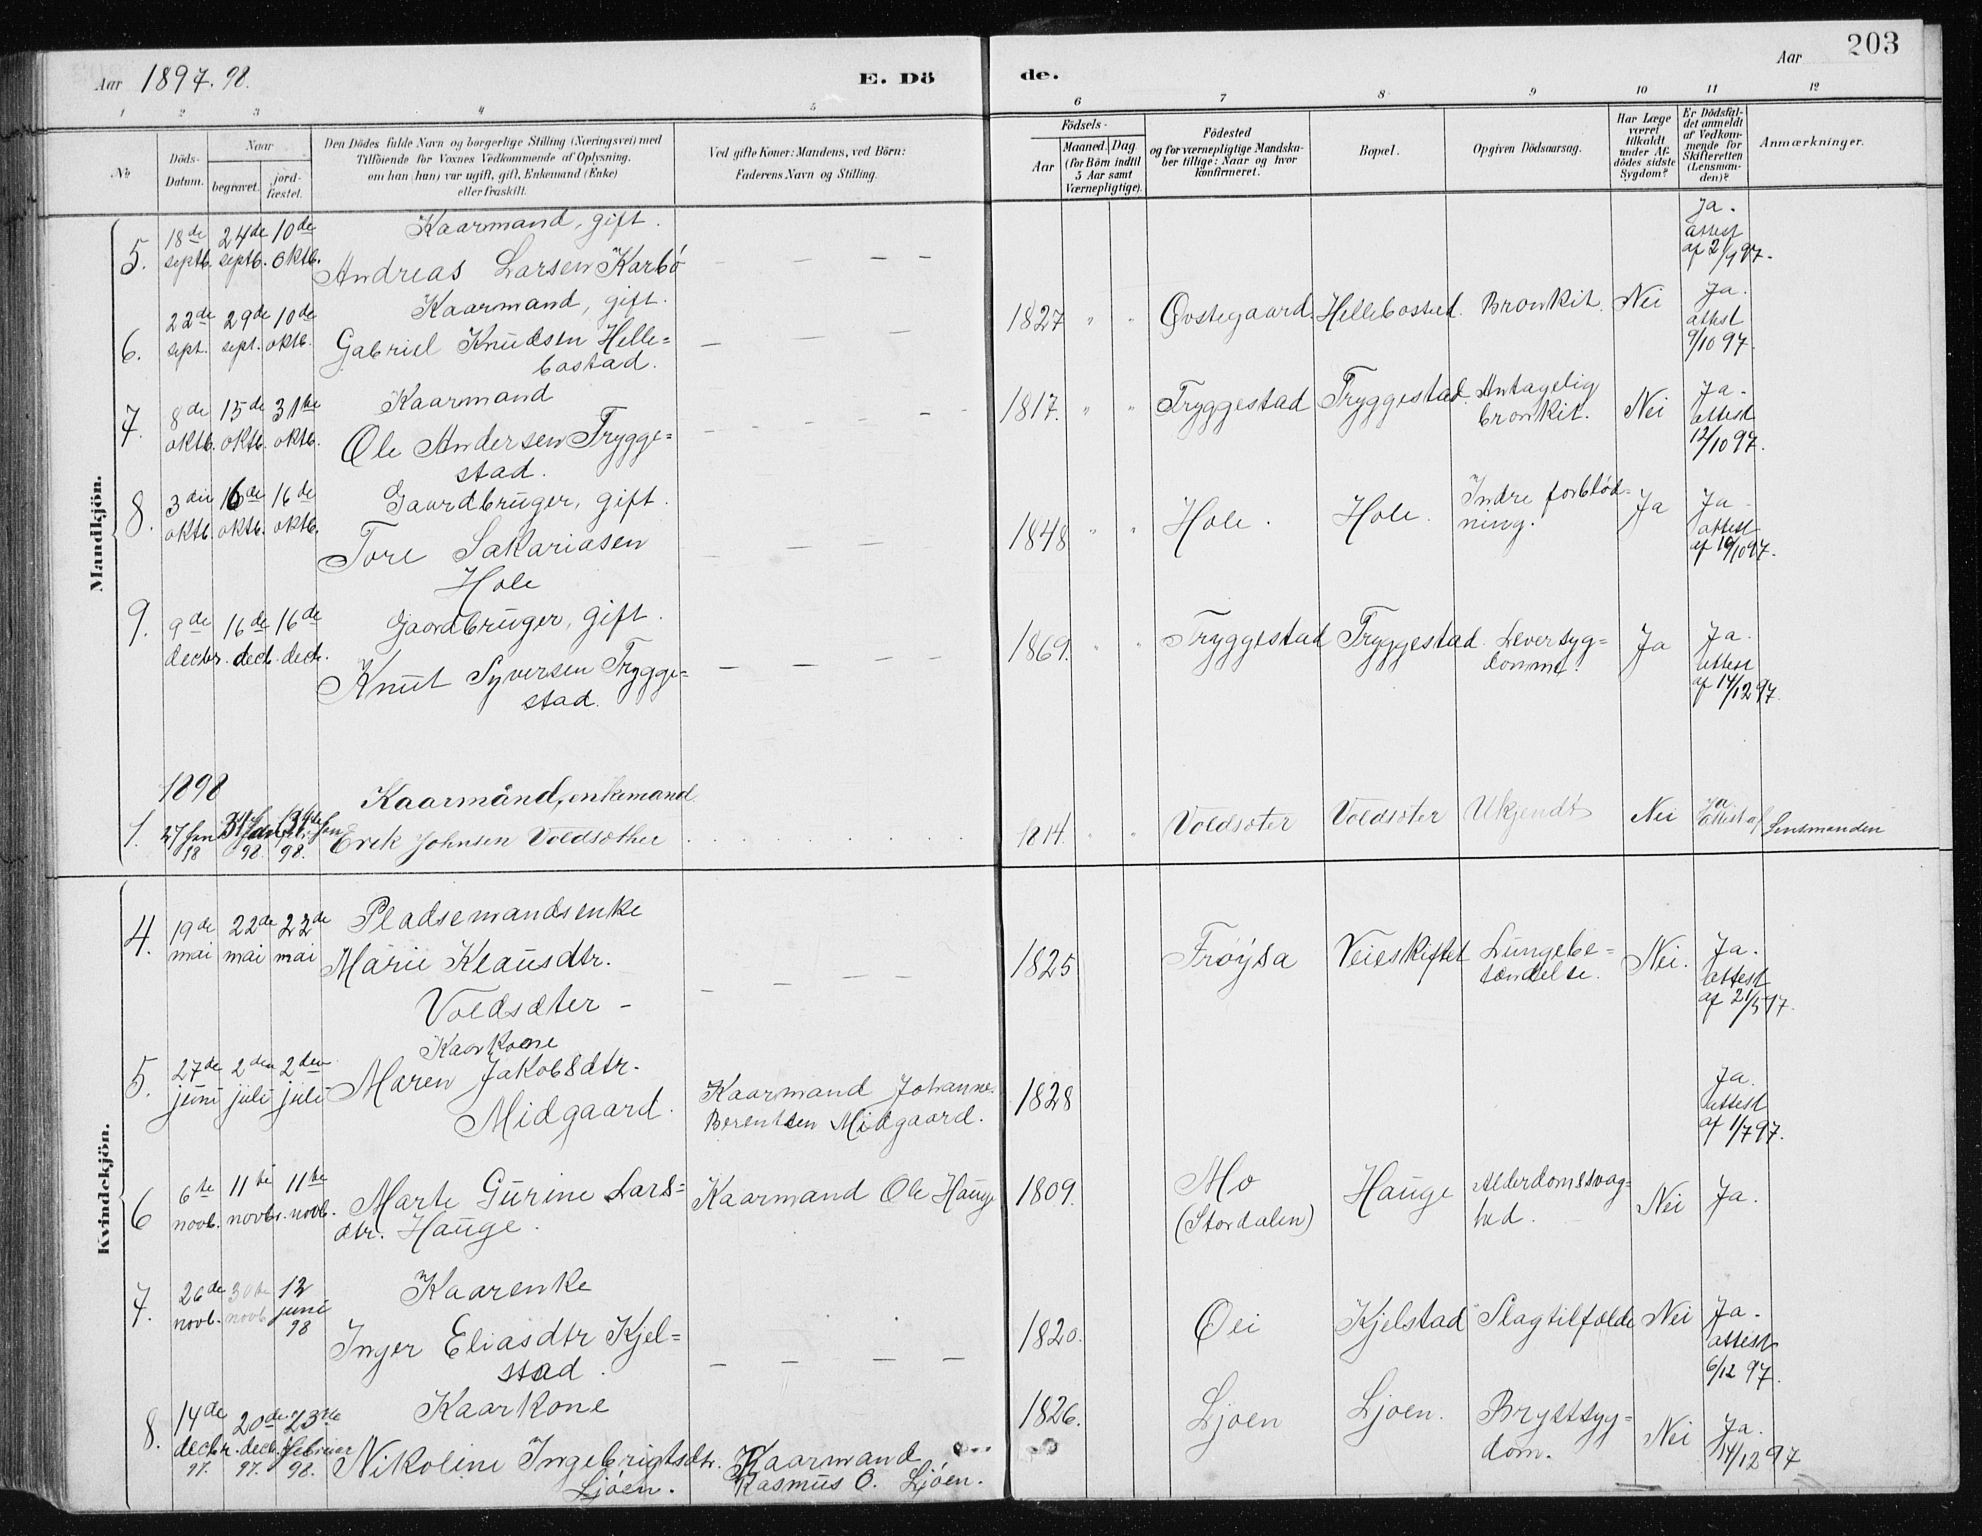 Aar 1897. 98.
E. Dö
de.
Aar
203
1 2 3 4 5 6 7 8 9 10 11 12
№
Döds-
Datum.
Naar
begravet.
jord-
fæstet.
Den Dödes fulde Navn og borgerlige Stilling (Næringsvei) med
Tilföiende for Voxnes Vedkommende af Oplysning.
om han (hun) var ugift, gift, Enkemand (Enke)
eller fraskilt.
Ved gifte Koner: Mandens, ved Börn:
Faderens Navn og Stilling.
Födsels-
Aar
Maaned. Dag
(for Börn indtil
5 Aar samt
Værnepligtige).
Födested
og for værnepligtige Mandska-
ber tillige: Naar og hvor
konfirmeret.
Bopæl.
Opgiven Dödsaarsag.
Har Læge
været
tilkaldt
under Af-
dödes sidste
Sygdom?
Er Dödsfal-
det anmeldt
af Vedkom-
mende for
Skifteretten
(Lensman-
den)?
Anmærkninger.
Mandkjön.
5.
18de
septb.
24de
septb.
10de
oktb.
Kaarmand, gift.
Andreas Larsen Karbó
Ja.
attest
af 2/9 97.
6.
22de
sept.
29de
sept.
10de
oktb.
Kaarmand, gift.
Gabriel Knudsen Helle=
bostad.
1827 " "
Øvstegaard.
Hellebostad.
Bronkit.
Nei
Ja.
attest
9/10 97.
7.
8de
oktb.
15de
oktb.
31te
oktb.
Kaarmand
Ole Andersen Trygge=
stad.
1817. " "
Tryggestad
Tryggestad.
Antagelig
bronkit.
Nei
Ja.
attest
12/10 97.
8.
3die
oktb.
16de
oktb.
16de
oktb.
Gaardbruger, gift.
Tore Sakariasen
Hole
1848 " "
Hole.
Hole.
Indre forblød-
ning.
Ja
Ja
attest
af 10/10 97.
9.
9de
decbr.
16de
decb.
16de
decb.
Gaardbruger, gift.
Knut Syversen Trygge=
stad.
1869. " "
Tryggestad
Tryggestad.
Leversyg=
domme.
Ja
Ja.
attest
af 14/12 97.
1898
1.
27 Jan
18
98.
98.
Kaarmand, enkemand
Erik Johnsen Voldsæther
1814. " "
Voldsæter
Voldsæter
Ukjendt
Nei
Ja
attest af
Lensmanden
Kvindekjön.
4.
19de
mai
22de
mai
22de
mai
Pladsemandsenke
Marie Klausdtr.
Voldsæter -
1825
Frøysa
Veieskiftet
Lungebe=
tændelse.
Nei.
Ja.
attest
af 21/5 97.
5.
27de
juni
2den
juli
2den
juli
Kaarkone
Maren Jakobsdtr.
Midgaard.
Kaarmand Johannes
Berentsen Midgaard.
1828
Ja.
attest
af 1/7 97.
6
6te
novb.
11te
novbr.
11te
novb.
Marte Gurine Lars=
dtr. Hauge.
Kaarmand Ole Hauge
1809.
Mo
(Stordalen)
Hauge
Alderdomssvag=
hed.
Nei
Ja.
7.
26de
novb.
30te
novb.
12
juni
98
Kaarenke
Inger Eliasdtr Kjel=
stad.
1820.
Øei
Kjelstad
Slagtilfælde
Nei
Ja.
attest
6/12 97.
8.
14de
decbr.
97.
20de
decb.
97.
23de
februar
98.
Kaarkone
Nikoline Ingebrigtsdtr.
Ljøen.
Kaarmand
Rasmus O. Ljøen.
1826.
Ljoen
Ljoen.
Brystsyg=
dom.
Nei
Ja.
14/12 97